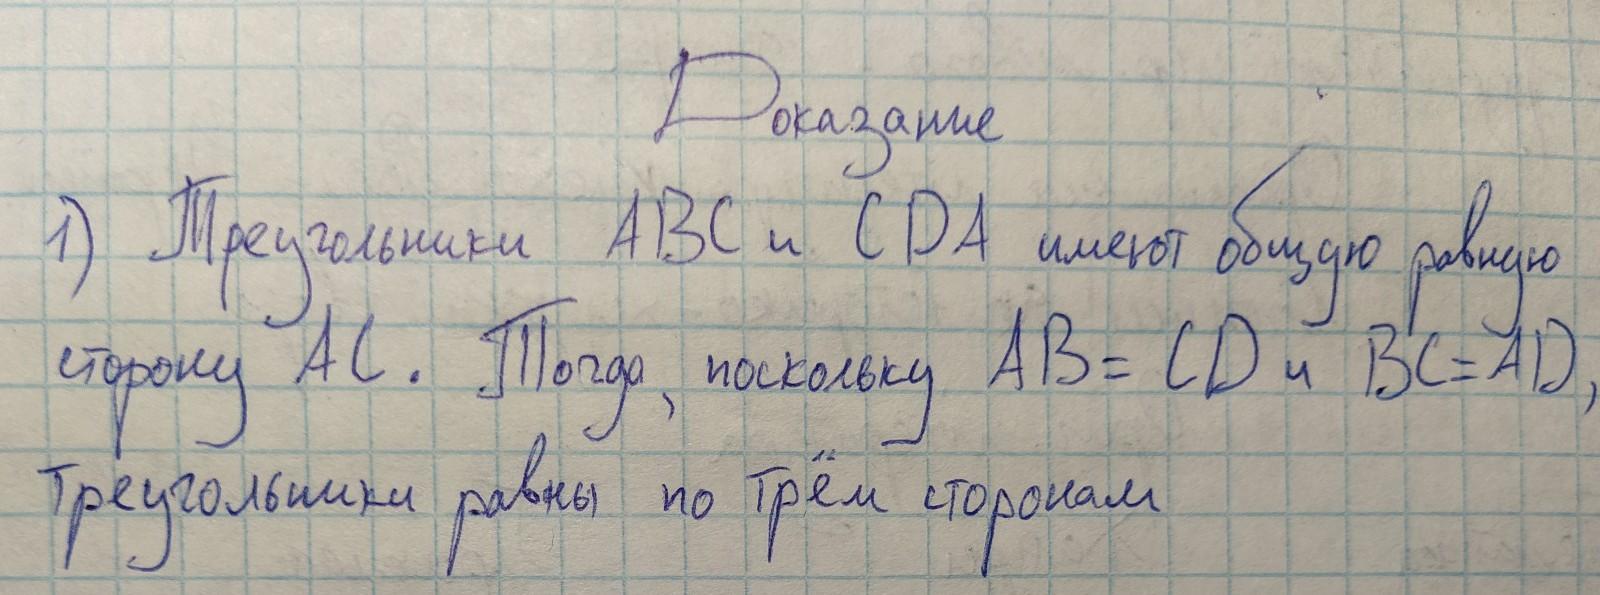 Доказание
1) Треугольники ABC и CDA имеют общую равную
сторону AC. Тогда, поскольку AB = CD и BC = AD,
треугольники равны по трём сторонам